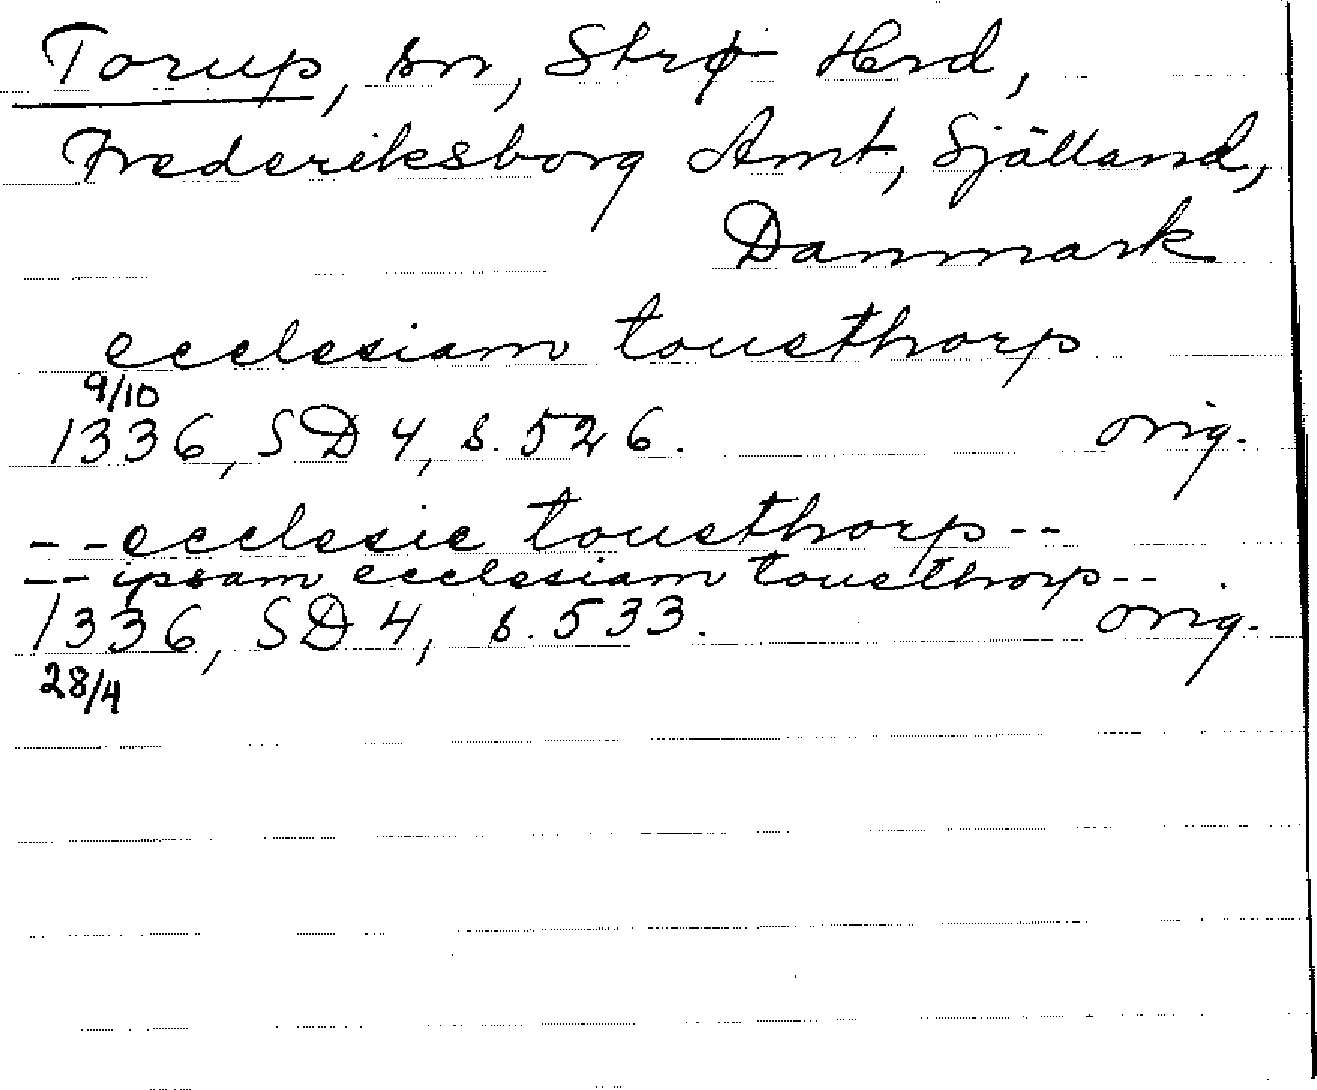 Torup, sn, Strø Herd,
Frederiksborg Amt, Själland,
Danmark
ecclesiam tousthorp
9/10
1336, SD 4, s. 526. orig.
- - ecclesie tousthorp - -
- - ipsam ecclesiam tousthorp - - .
1336, SD 4, s. 533. orig.
28/4